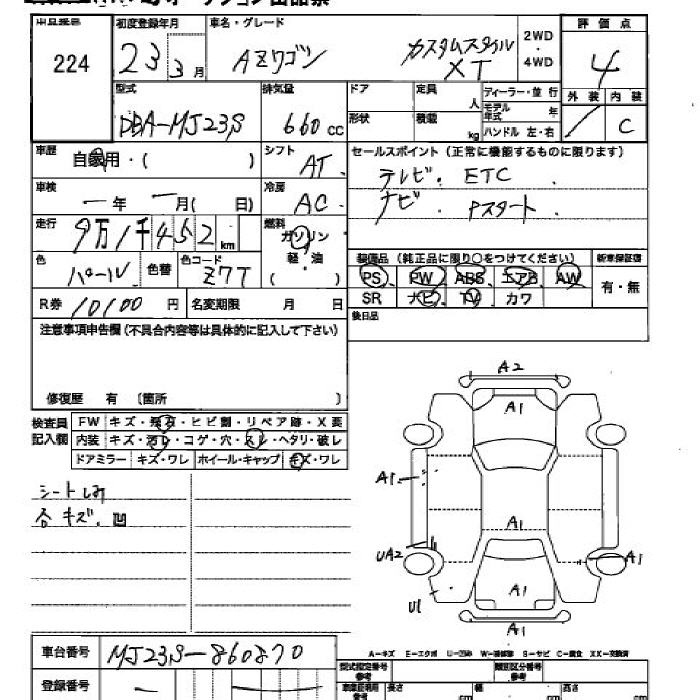 224
初度登録年月
23 3月
車名・グレード
AZワゴン カスタムスタイル XT
2WD・4WD
評価点
4
外装 内装
C
型式
DBA-MJ23S
排気量
660 CC
ドア 定員 人
形状 積載 kg
ディーラー・並行
モデル年式 年
ハンドル 左・右
車歴
自家用・( )
シフト
AT
セールスポイント (正常に機能するものに限ります)
テレビ. ETC
ナビ. Pスタート
車検
一年 一月( 日)
冷房
AC
走行
9万1千452km
燃料
ガソリン
軽・油
( )
色
パール
色替
色コード
Z7T
装備品 (純正品に限り○をつけてください)
新車保証書
PS PW ABS エアB AW
SR ナビ TV カワ
有・無
R券 10100円
名変期限 月 日
後日品
注意事項申告欄 (不具合内容等は具体的に記入して下さい)
修復歴 有 〔箇所 〕
検査員記入欄
FW キズ・飛石・ヒビ割・リペア跡・X長
内装 キズ・汚レ・コゲ・穴・スレ・ヘタリ・破レ
ドアミラー キズ・ワレ ホイール・キャップ キズ・ワレ
シートしみ
各キズ.凹
A2
A1
A1
A1
UA2
A1
A1
U1
A1
A-キズ E-エクボ U-凹み W-補修跡 S-サビ C-腐食 XX-交換済
車台番号
MJ23S-860870
型式指定番号 参考
類別区分番号 参考
登録番号
一
長さ cm 幅 cm 高さ cm